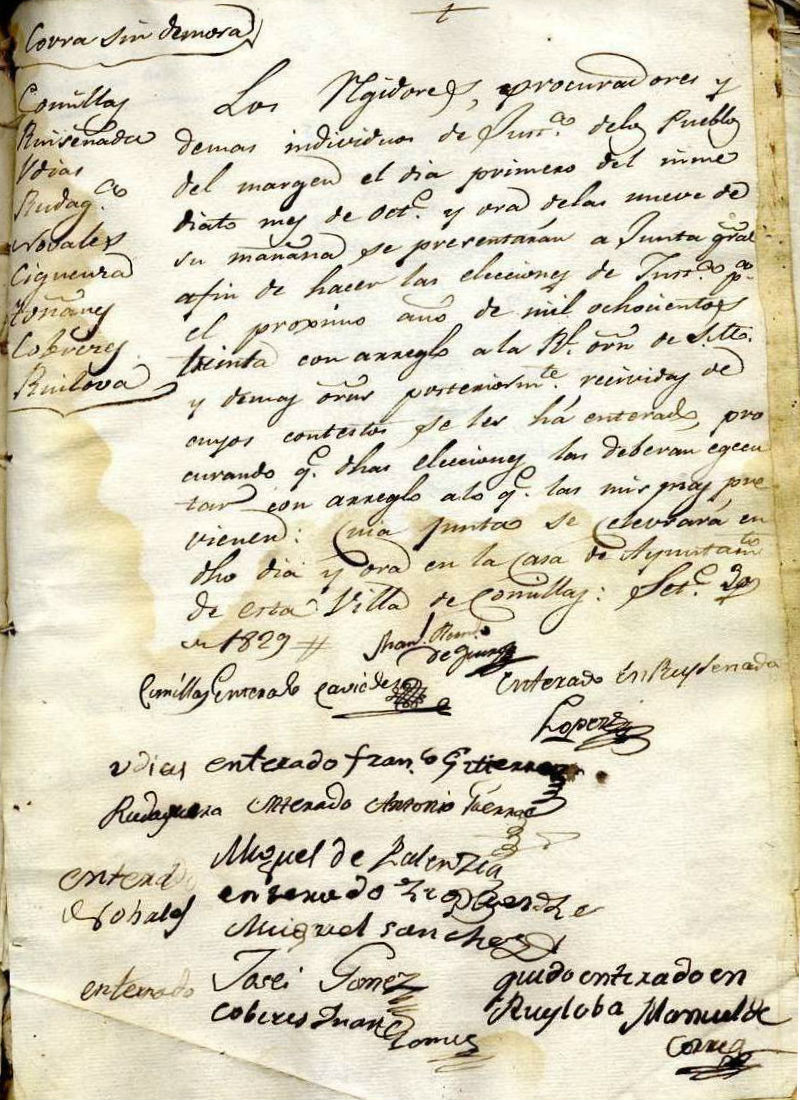 Corra sin demora
Comillas
Ruiseñada
Vdias
Rudag.ª
Novales
Ciguenza
Toñanes
Cobreces
Ruilova
Los Rgidores, procuradores y
demas individuos de Just.ª delos Pueblos
del margen el dia primero del inme
diato mes de Oct.e y ora delas nueve de
su mañana se presentarán a Junta gral.
afin de hacer las elecciones de Just.ª p.ª
el proximo año de mil ochocientos
treinta con arreglo a la Rl. orn de S.M.
y demas orns posteriorm.te recividas de
cuyos contestos se les há enterado, pro
curando q.e dhas elecciones las deberan egecu
tar con arreglo alo q.e las mismas pre
vienen: Cuia Junta se celevrará en
dho dia y ora en la Casa de Ayuntam.to
de esta Villa de Comillas: Set.e 29
de 1829
Man.l
de
Comillas Enterado Caviedes
Enterado En Ruysenada
Lopez
vdias enterado fran.co Gutierrez
Rudaguera enterado Antonio
Miguel de Palenzia
enterado
Nobales
enterado
Miguel sanchez
enterado Josei Gomez
coberes Juan
Gomez
quedo enterado en
Ruyloba Manuel de
Correa